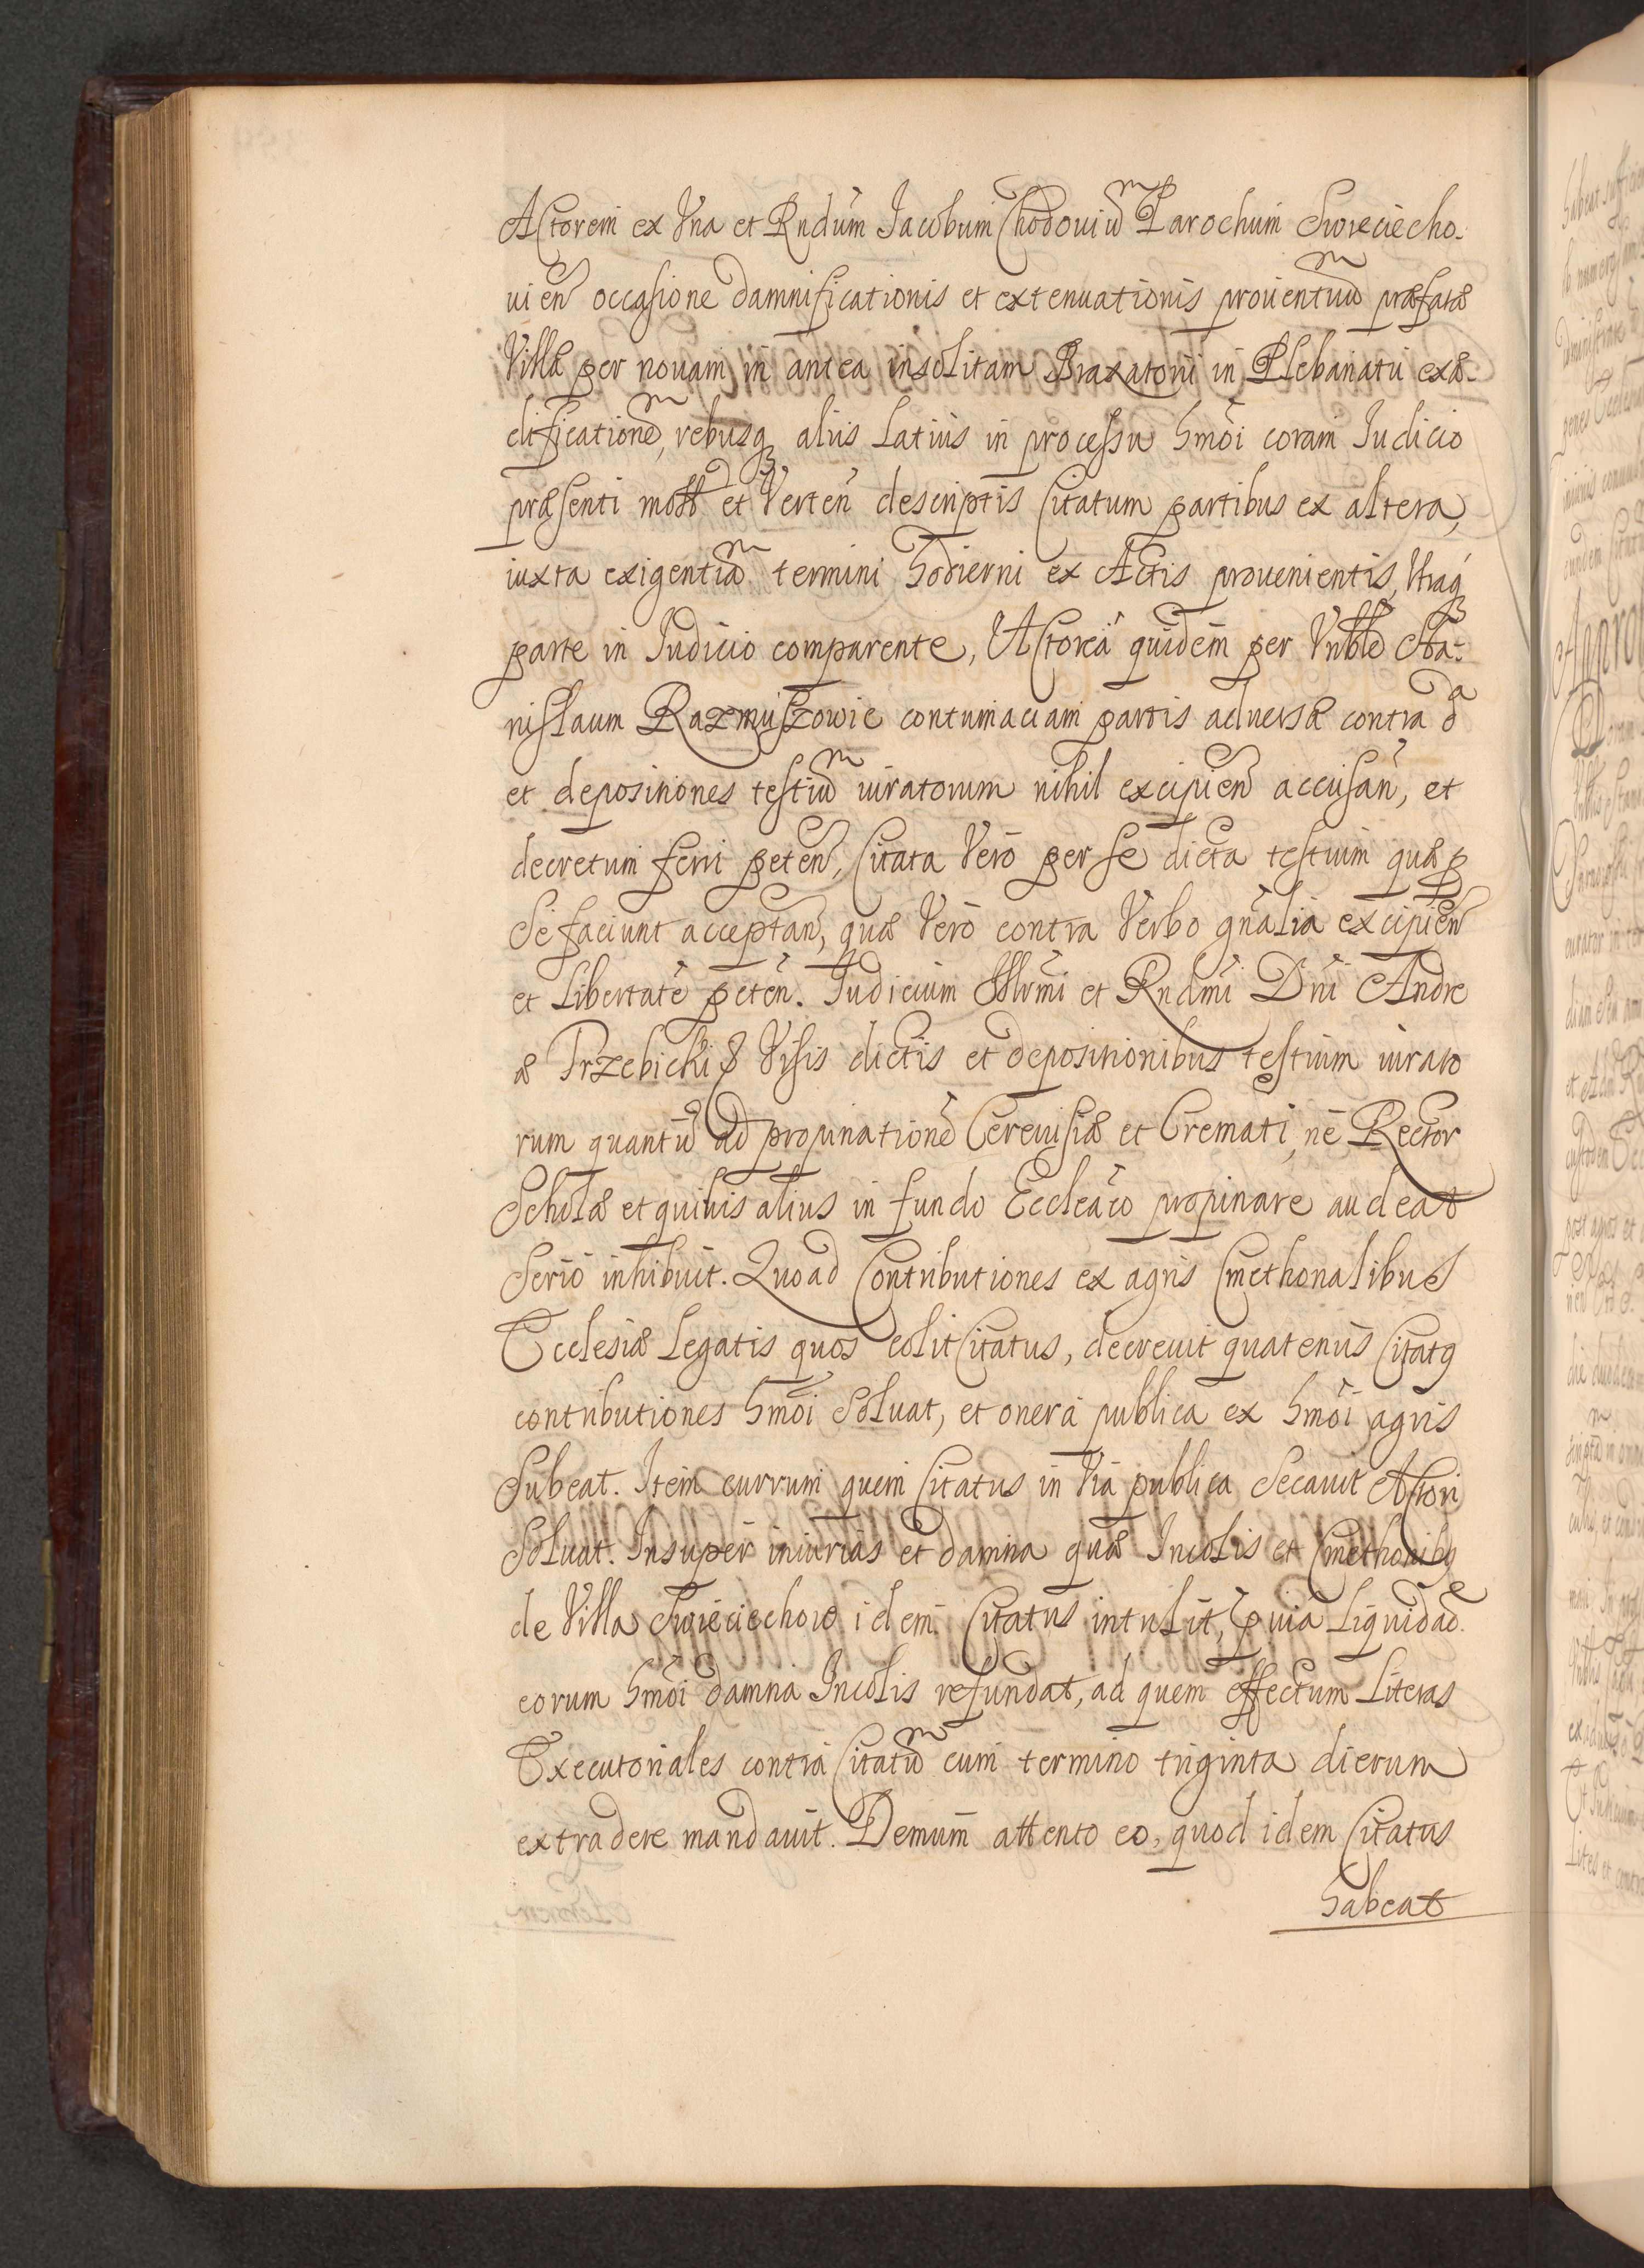 Actorem ex Vna et Rndūm Iacobum Chodouiū Parochum Swieciecho-
uien̄ occasione damnificationis et extenuationis prouentuū præfatæ
Villæ per nouam in antea insolitam Braxatorii in Plebanatu exæ-
dificationē, rebusq₃ aliis latius in processu hm̄oi coram Iudicio
præsenti mot̄ et Verten̄ descriptis Citatum partibus ex altera,
iuxta exigentiā termini hodierni ex Actis prouenientis, Vtraq₃
parte in Iudicio comparente, Actorea quidem per Nōble Sta-
nislaum Razmuszowic contumaciam partis aduersæ contra dᵃ
et depositiones testiū iuratorum nihil excipien̄ accusan̄, et
decretum ferri peten̄, Citata Vero per se dicta testium quæ p
se faciunt acceptan̄, quæ Vero contra Verbo gn̄alia excipien̄
et libertatē peten̄. Iudicium Illrmī et Rndmī Dnī Andre
æ Trzebicki & Visis dictis et depositionibus testium iurato
rum quantū ad propinationē Cereuisiæ et Cremati, ne Rector
Scholæ et quiuis alius in fundo Eccleāco propinare audeat
serio inhibuit. Quoad Contributiones ex agris Cmethonalibus
Ecclesiæ legatis quos colit Citatus, decreuit quatenus Citatꝯ
contributiones hm̄oi soluat, et onera publica ex hm̄oi agris
subeat. Item currum quem Citatus in Via publica secauit Actori
soluat. Insuper iniurias et damna quæ Incolis et Cmethonibꝯ
de Villa Swieciechow idem Citatus intulit, præuia liquidaōe
eorum hm̄oi damna Incolis refundat, ad quem effectum literas
Executoriales contra Citatū cum termino triginta dierum
extradere mandauit. Demum attento eo, quod idem Citatus
habeat